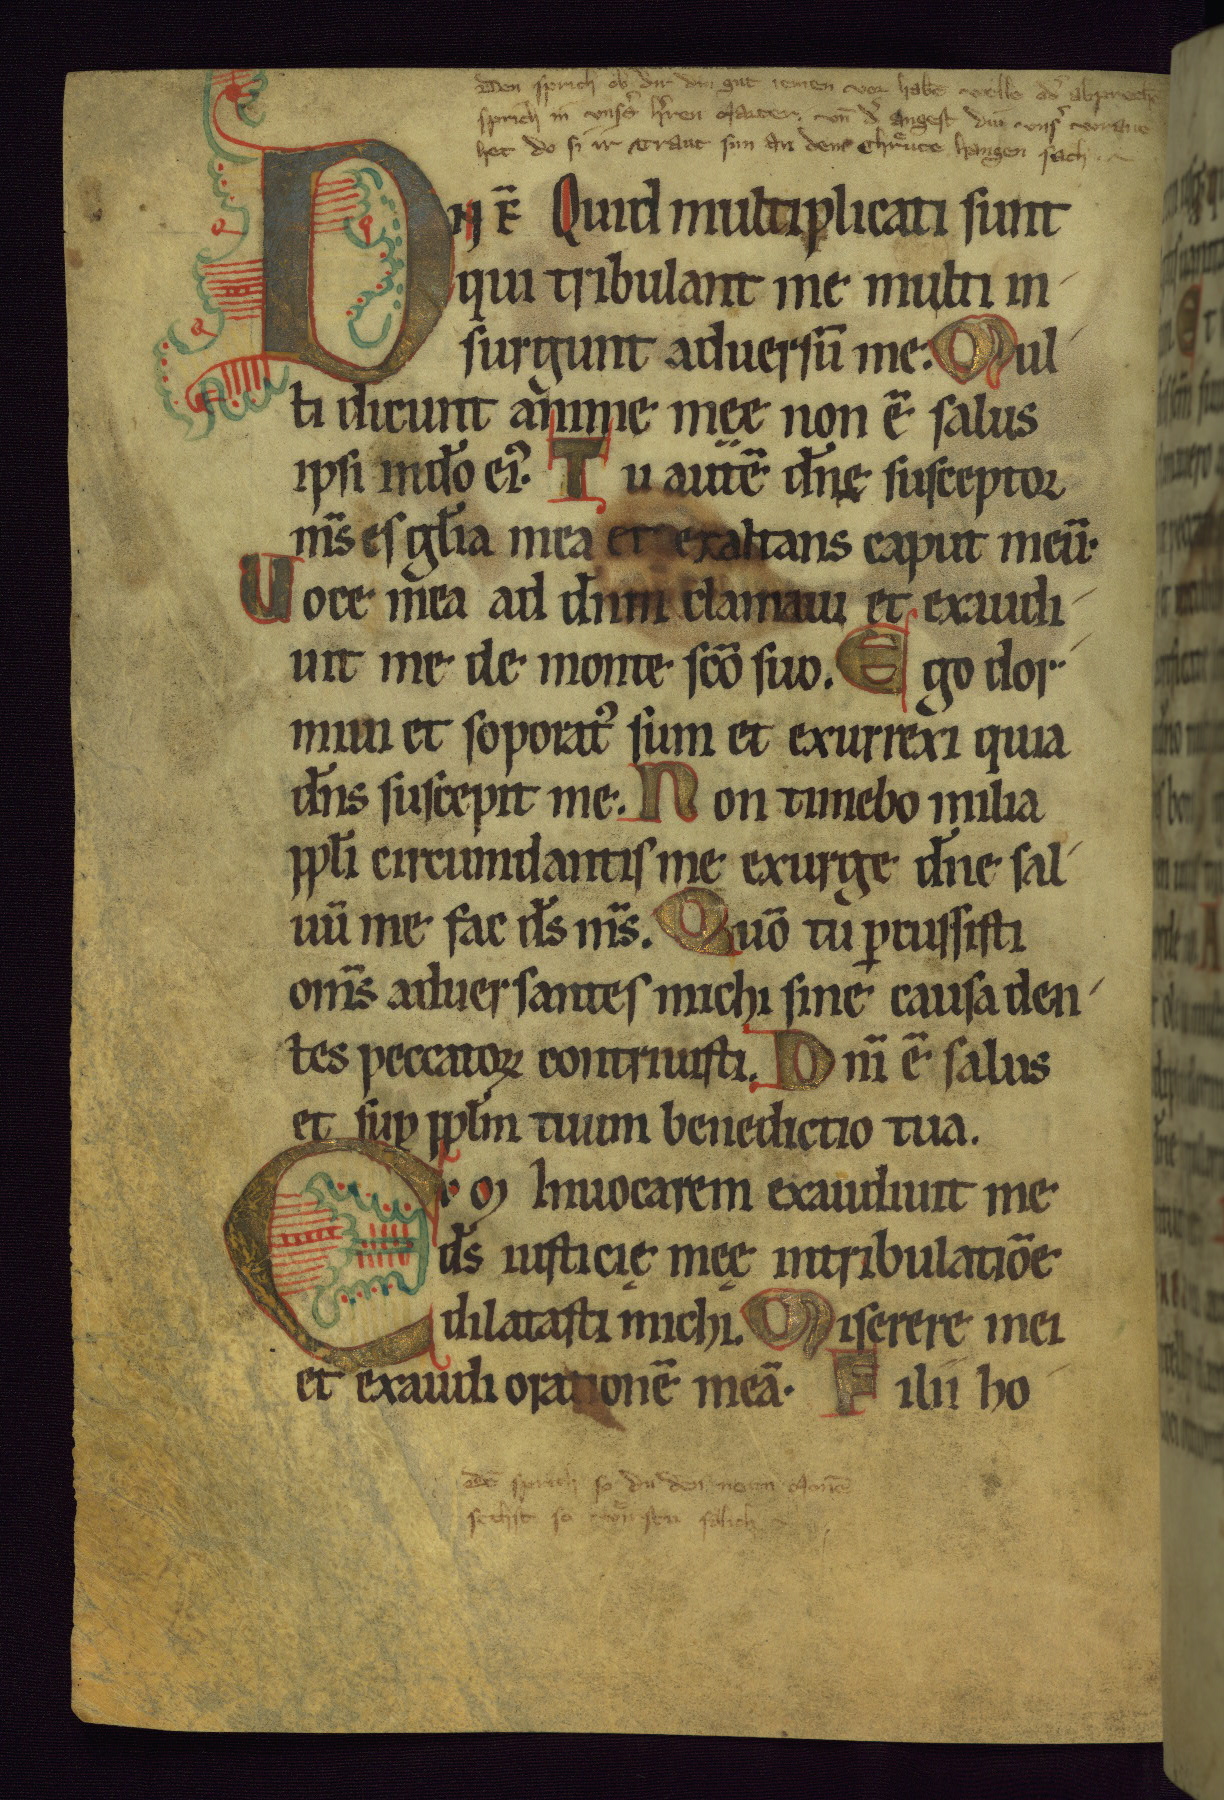 Den sprich ob dir din gut iemen vor habe welle od' absprech
sprich in uns's h'ren marter, vn d' angest diu uns' vrauwe
het do si ir traut sun an dem chruͤce hangen sach.
Dnē Quid multiplicati sunt
qui tribulant me multi in
surgunt aduersū me. Mul
ti dicunt anime meę non ē salus
ipsi indo ei'. Tu autē dnę susceptor
ms es glia mea et exaltans caput meū.
Uoce mea ad dnm clamaui et exaudi
uit me de monte scō suo. Ego dor
miui et soporat' sum et exurrexi quia
dns suscepit me. Non timebo milia
ppli circumdantis me exurge dne sal
uū me fac ds ms. Quō tu pcussisti
oms aduersantes michi sine causa den
tes peccatoꝝ contriuisti. Dni ē salus
et sup pplm tuum benedictio tua.
Cū Inuocarem exaudiuit me
ds iusticię meę intribulatiōe
dilatasti michi. Miserere mei
et exaudi orationē meā. Filii ho
sprich so du den neuen
sechst so